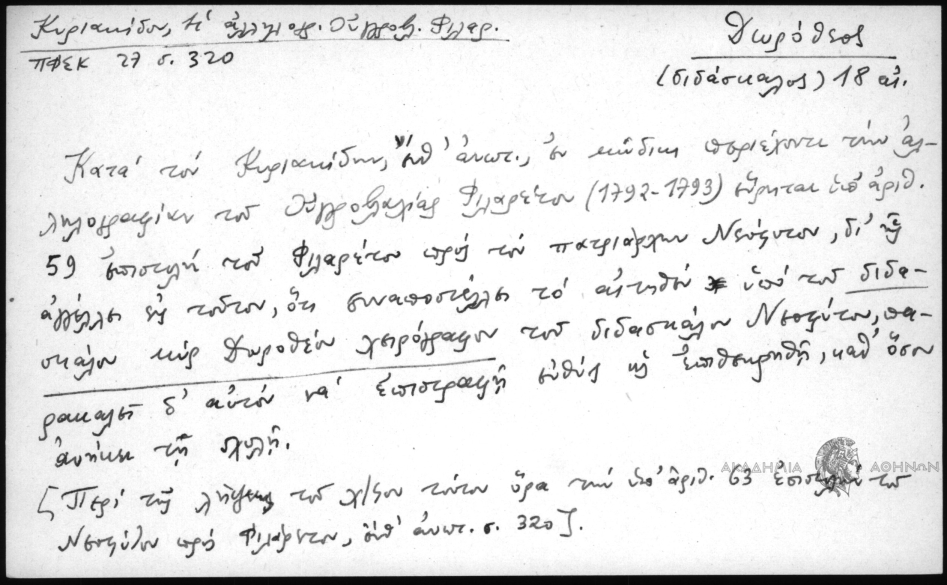 Κυριακίδου, Ἡ ἀλληλογρ. Οὑγγροβλ. Φιλαρ.
ΠΦΣΚ 27 σ. 320
Δωρόθεος
(διδάσκαλος) 18 αἰ.
Κατὰ τὸν Κυριακίδην, ἔνθ' ἀνωτ., ἐν κώδικι περιέχοντι τὴν ἀλ-
ληλογραφίαν τοῦ Οὑγγροβλαχίας Φιλαρέτου (1792-1793) εὕρηται ὑπ' ἀριθ.
59 ἐπιστολὴ τοῦ Φιλαρέτου πρὸς τὸν πατριάρχην Νεόφυτον, δι' ἧς
ἀγγέλλει εἰς τοῦτον, ὅτι συναποστέλλει τὸ αἰτηθὲν ὑπὸ τοῦ διδα-
σκάλου κὺρ Δωροθέου χειρόγραφον τοῦ διδασκάλου Νεοφύτου, πα-
ρακαλεῖ δ' αὐτὸν νὰ ἐπιστραφῇ εὐθὺς ὡς ἐπιθεωρηθῇ, καθ' ὅσον
ἀνήκει τῇ σχολῇ.
[Περὶ τῆς λήψεως τοῦ χ/φου τούτου ὅρα τὴν ὑπ' ἀριθ. 63 ἐπιστολὴν τοῦ
Νεοφύτου πρὸς Φιλάρετον, ἔνθ' ἀνωτ. σ. 320].
ΑΚΑΔΗΜΙΑ ΑΘΗΝΩΝ